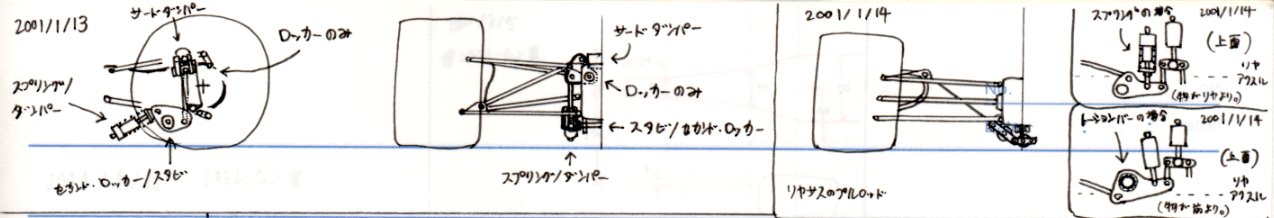 2001/1/13
サードダンパー
ロッカーのみ
スプリング/
ダンパー
セカンド・ロッカー/スタビ
サードダンパー
ロッカーのみ
スタビ/セカンド・ロッカー
スプリング/ダンパー
2001/1/14
リヤサスのプルロッド
スプリングの場合
2001/1/14
(上面)
リヤ
アクスル
トーションバーの場合
2001/1/14
(上面)
リヤ
アクスル
No.